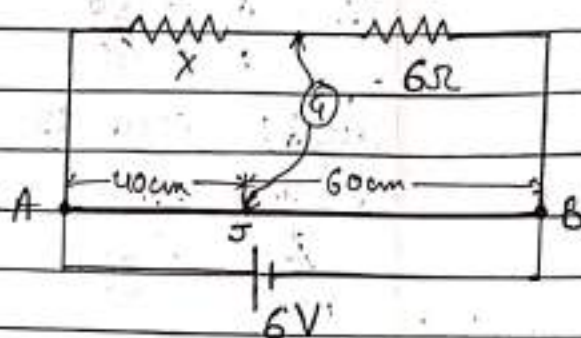 X 6Ω
G
40cm 60cm
A B
J
6V